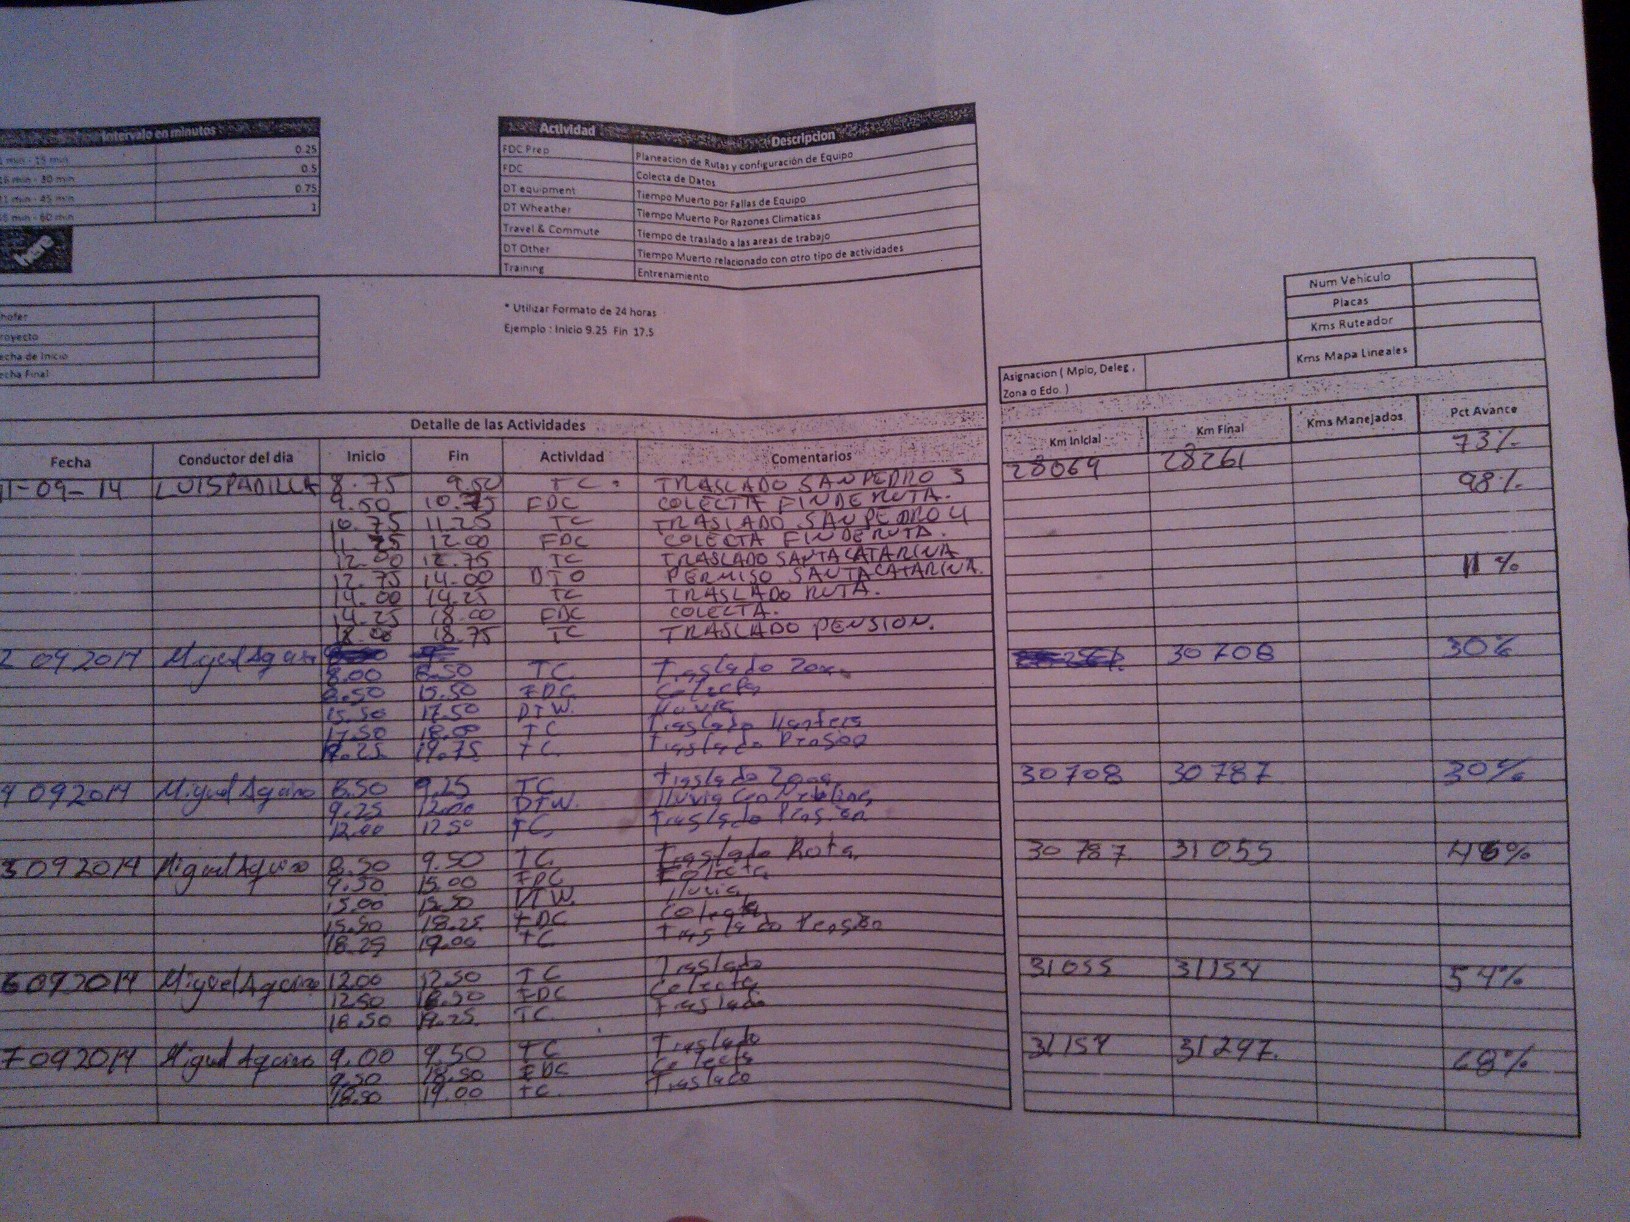 Intervalo en minutos
min - 15 min 0.25
min - 30 min 0.5
min - 45 min 0.75
min - 60 min 1
here
Actividad Descripcion
FDC Prep Planeacion de Rutas y configuración de Equipo
FDC Colecta de Datos
DT equipment Tiempo Muerto por Fallas de Equipo
DT Wheather Tiempo Muerto Por Razones Climaticas
Travel & Commute Tiempo de traslado a las areas de trabajo
DT Other Tiempo Muerto relacionado con otro tipo de actividades
Training Entrenamiento
hofer
royecto
echa de Inicio
echa Final
* Utilizar Formato de 24 horas
Ejemplo : Inicio 9.25 Fin 17.5
Num Vehiculo
Placas
Kms Ruteador
Kms Mapa Lineales
Asignacion ( Mpio, Deleg ,
Zona o Edo. )
Detalle de las Actividades
Fecha Conductor del dia Inicio Fin Actividad Comentarios Km Inicial Km Final Kms Manejados Pct Avance
11-09-14 LUIS PADILLA 8.75 9.50 TC. TRASLADO SAN PEDRO 3 28069 28261 73%
9.50 10.75 FDC COLECTA FIN DE RUTA. 98%
10.75 11.25 TC TRASLADO SAN PEDRO 4
11.25 12.00 FDC COLECTA FIN DE RUTA.
12.00 12.75 TC TRASLADO SANTA CATARINA
12.75 14.00 DTO PERMISO SANTA CATARINA. 11%
14.00 14.25 TC TRASLADO RUTA.
14.25 18.00 FDC COLECTA.
18.00 18.75 TC TRASLADO PENSION.
2 09 2014 Miguel Aquino 30708 30%
8.00 8.50 TC Traslado Zona
8.50 15.50 FDC Colecta
15.50 17.50 DTW. lluvia
17.50 18.00 TC Traslado
19.25 19.75 TC. Traslado Pension
4 09 2014 Miguel Aquino 8.50 9.25 TC Traslado Zona 30708 30787 30%
9.25 12.00 DTW. lluvia con neblina
12.00 12.50 TC, Traslado Pension
3 09 2014 Miguel Aquino 8.50 9.50 TC Traslado Rota, 30787 31055 46%
9.50 15.00 FDC Colecta
15.00 15.50 DTW. lluvia
15.50 18.25 FDC Colecta
18.25 19.00 TC Traslado Pension
6 09 2014 Miguel Aquino 12.00 12.50 TC Traslado 31055 31154 54%
12.50 18.50 FDC Colecta
18.50 19.25 TC. Traslado
7 09 2014 Miguel Aquino 9.00 9.50 TC Traslado 31154 31297. 68%
9.50 18.50 FDC Colecta
18.50 19.00 TC. Traslado